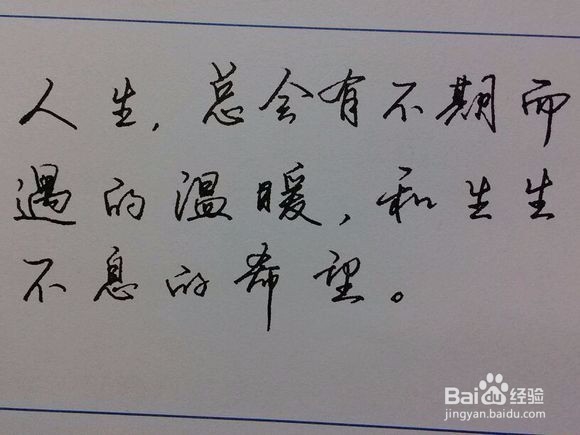 人生，总会有不期而
遇的温暖，和生生
不息的希望。
Baidu经验
jingyan.baidu.com